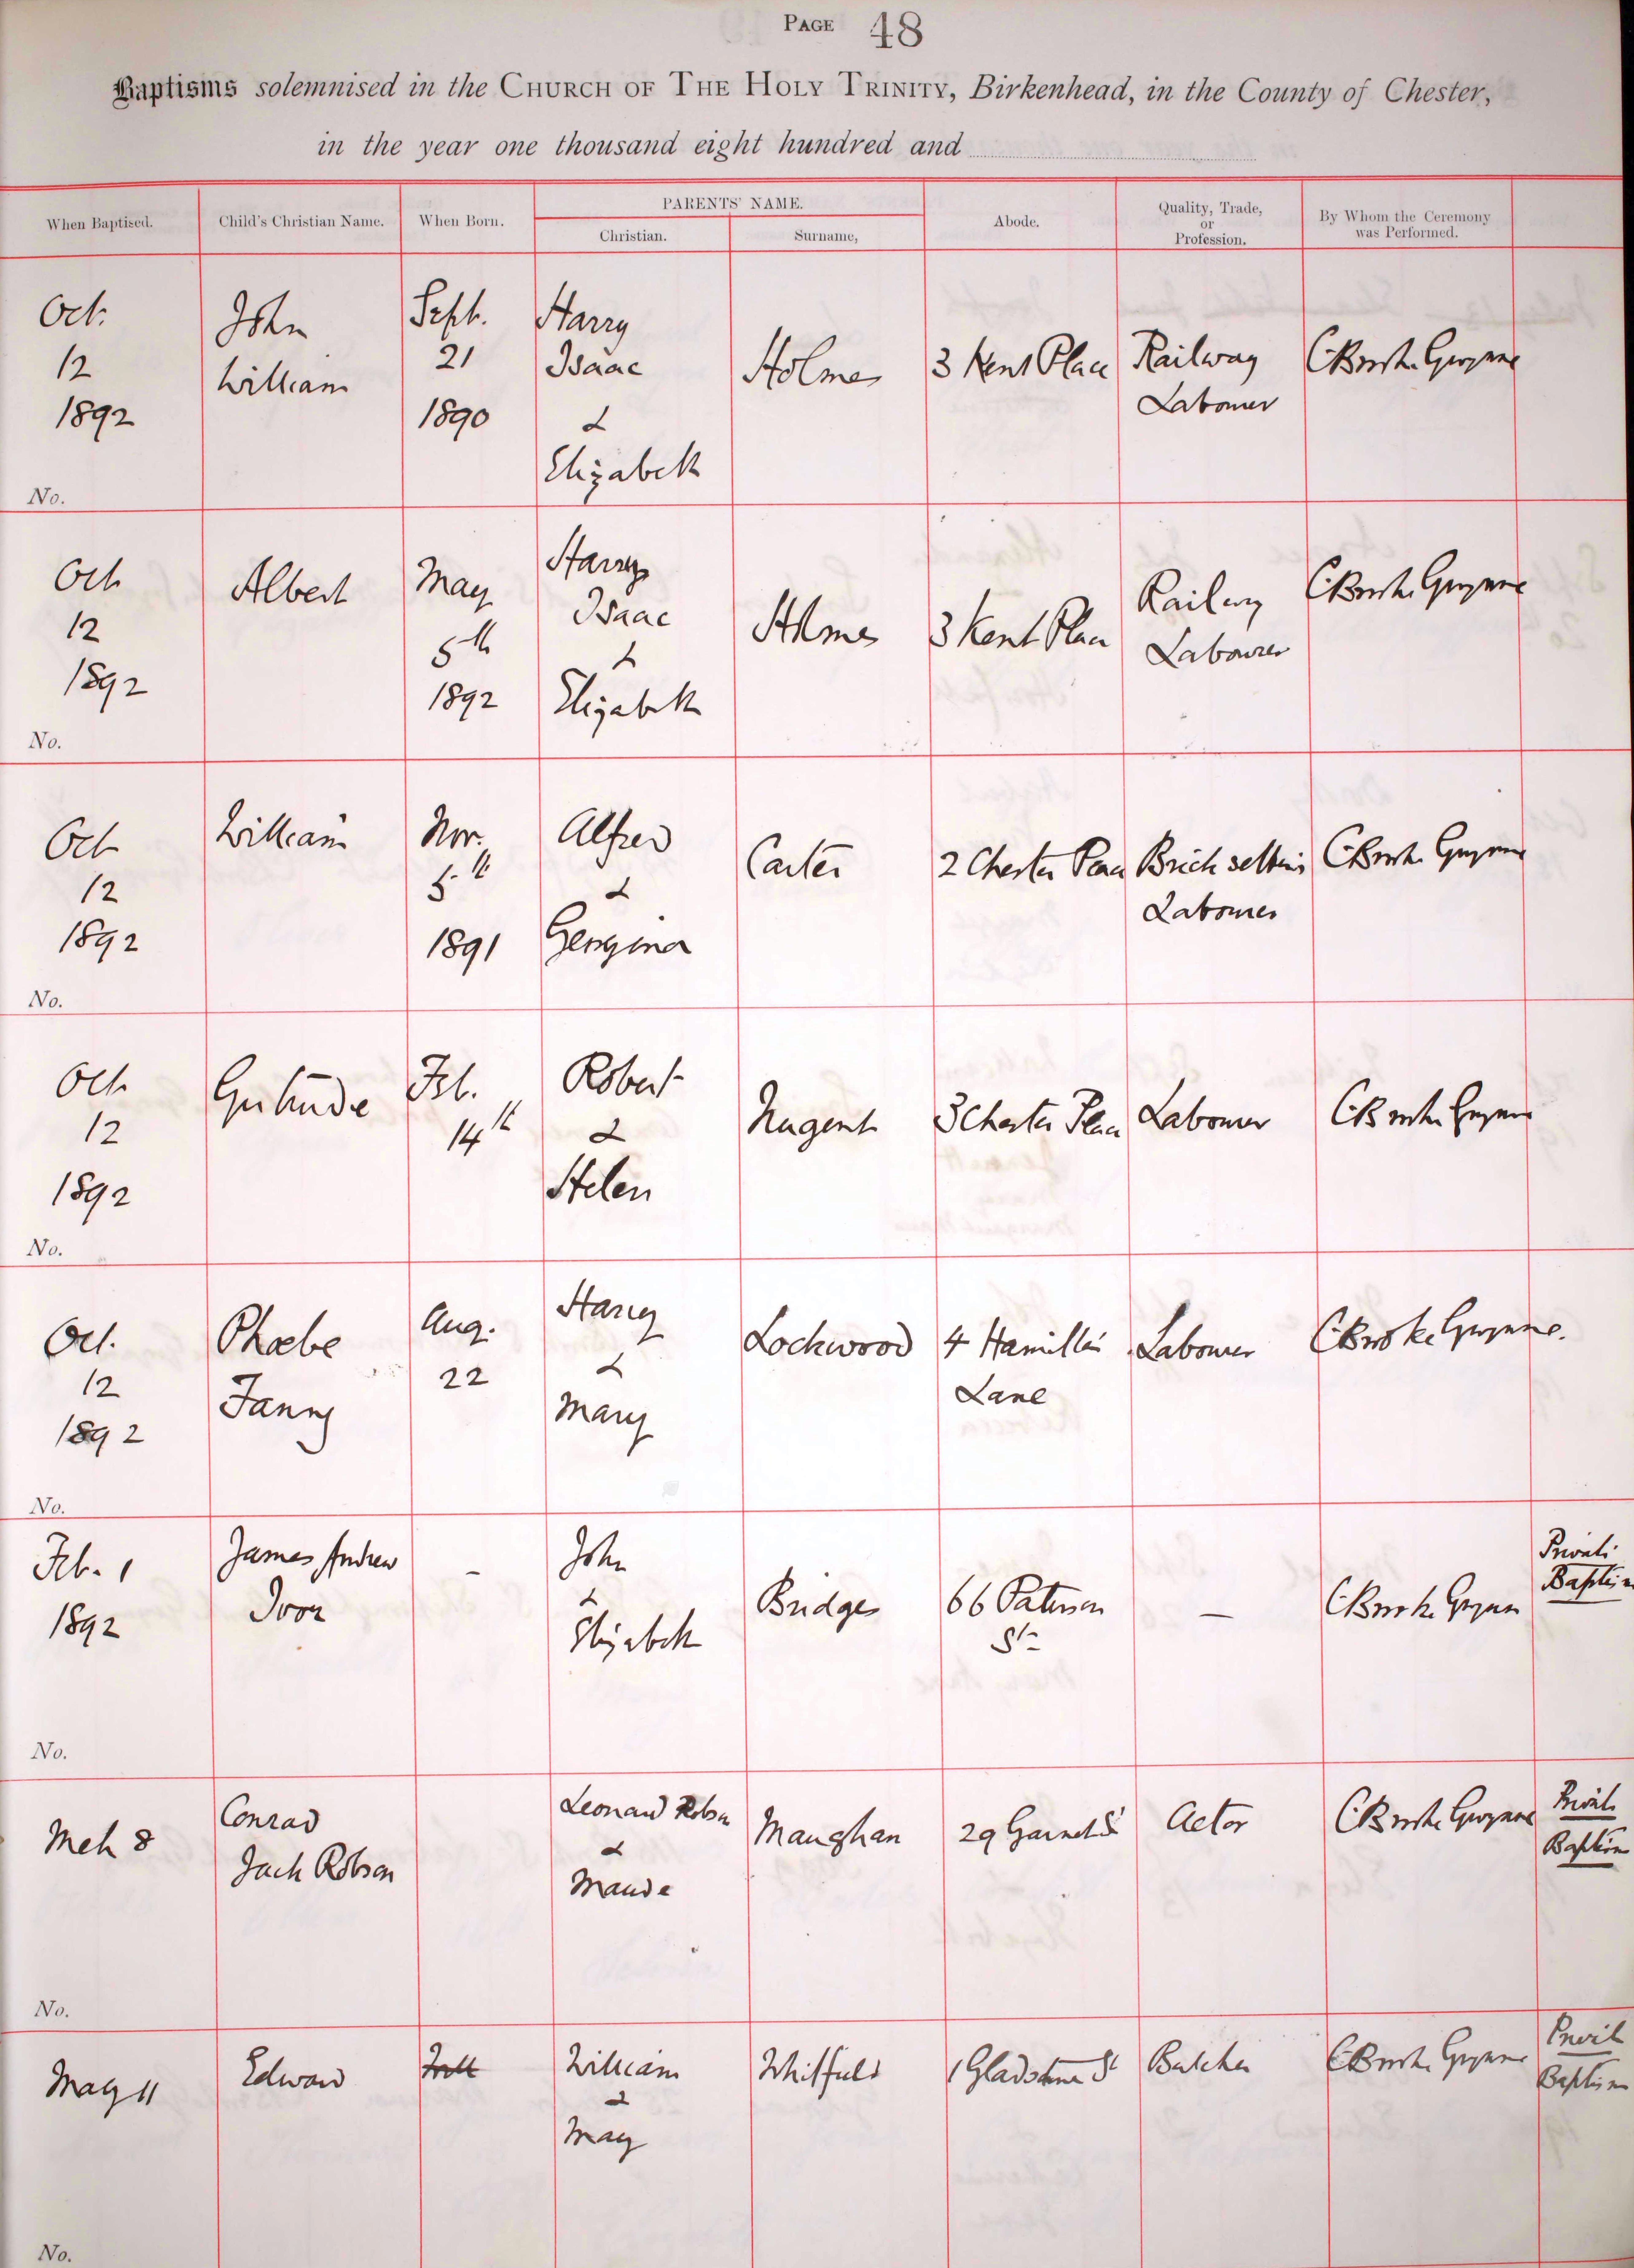 PAGE 48
Baptisms solemnised in the CHURCH OF THE HOLY TRINITY, Birkenhead, in the County of Chester,
in the year one thousand eight hundred and
PARENTS' NAME.
When Baptised.
Child's Christian Name.
When Born.
Christian.
Surname,
Abode.
Quality, Trade,
or
Profession.
By Whom the Ceremony
was Performed.
Oct.
12
1892
John
William
Sept.
21
1890
Harry
Isaac
&
Elizabeth
Holmes
3 Kent Place
Railway
Labourer
No.
Oct
12
1892
Albert
May
5th
1892
Harry
Isaac
&
Elizabeth
Holmes
3 Kent Place
Railway
Labourer
No.
Oct
12
1892
William
Nov.
5th
1891
Alfred
&
Georgina
Carter
2 Chester Place
Brick setters
Labourer
No.
Oct
12
1892
Gertrude
Feb.
14th
Robert
&
Helen
Nugent
3 Chester Place
Labourer
No.
Oct.
12
1892
Phoebe
Fanny
Aug.
22
Harry
&
Mary
Lockwood
4 Hamilton
Lane
Labourer
No.
Feb. 1
1892
James Andrew
Ivor
-
John
&
Elizabeth
Bridges
66 Paterson
St
-
Private
Baptism
No.
Mch 8
Conrad
Jack Robson
Leonard Robson
&
Maude
Maughan
29 Garnet St
Actor
Private
Baptism
No.
May 11
Edward
William
&
May
Whitfield
1 Gladstone St
Butcher
Private
Baptism
No.